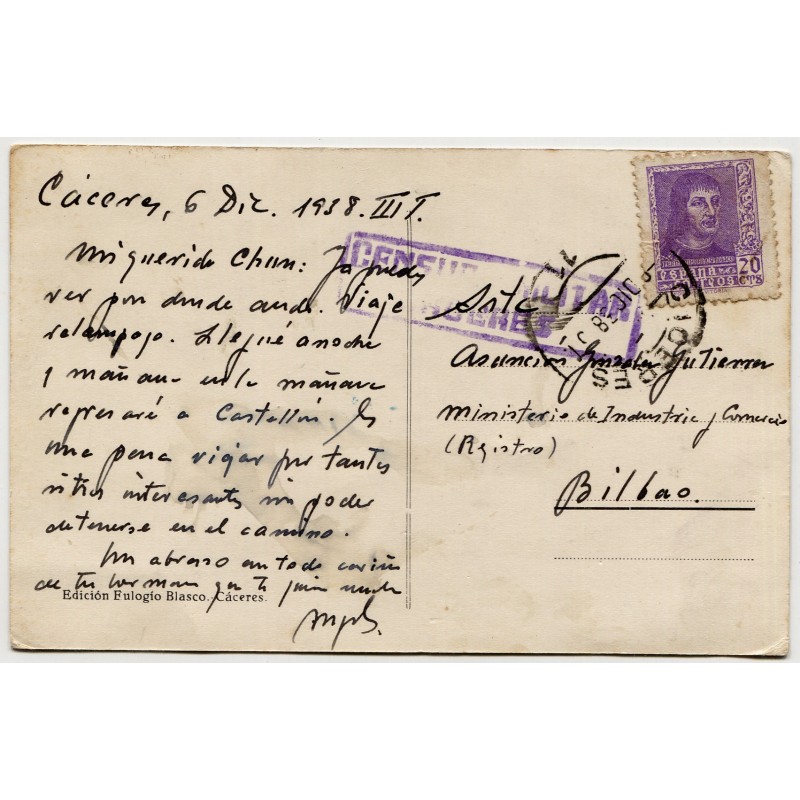 Cáceres, 6 Dic. 1938. III T.
Mi querida Chun: Ya puedes
ver por donde ando. Viaje
relampago. Llegué anoche
y mañana en la mañana
regresaré a Castellón. Es
una pena viajar por tantos
sitios interesantes sin poder
detenerse en el camino.
Un abrazo con todo cariño
de tu hermano que te quiere mucho
Edición Eulogio Blasco.-Cáceres.
CENSURA MILITAR
CACERES
ESPAÑA
CORREOS
20
CTS
Srta
Asuncion Gonzalez Gutierrez
Ministerio de Industria y Comercio
(Registro)
Bilbao.